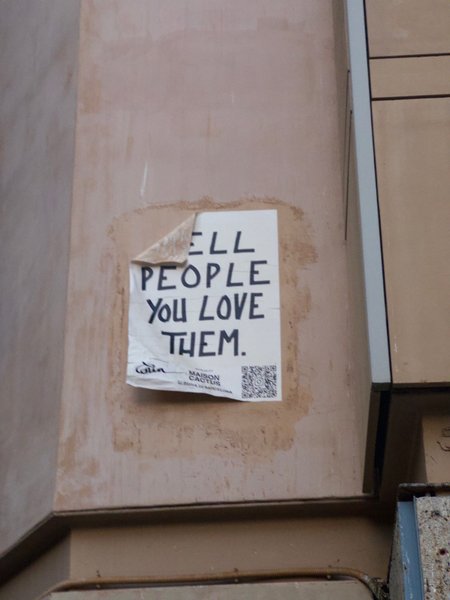 ELL
PEOPLE
YOU LOVE
THEM.
MAISON
CACTUS